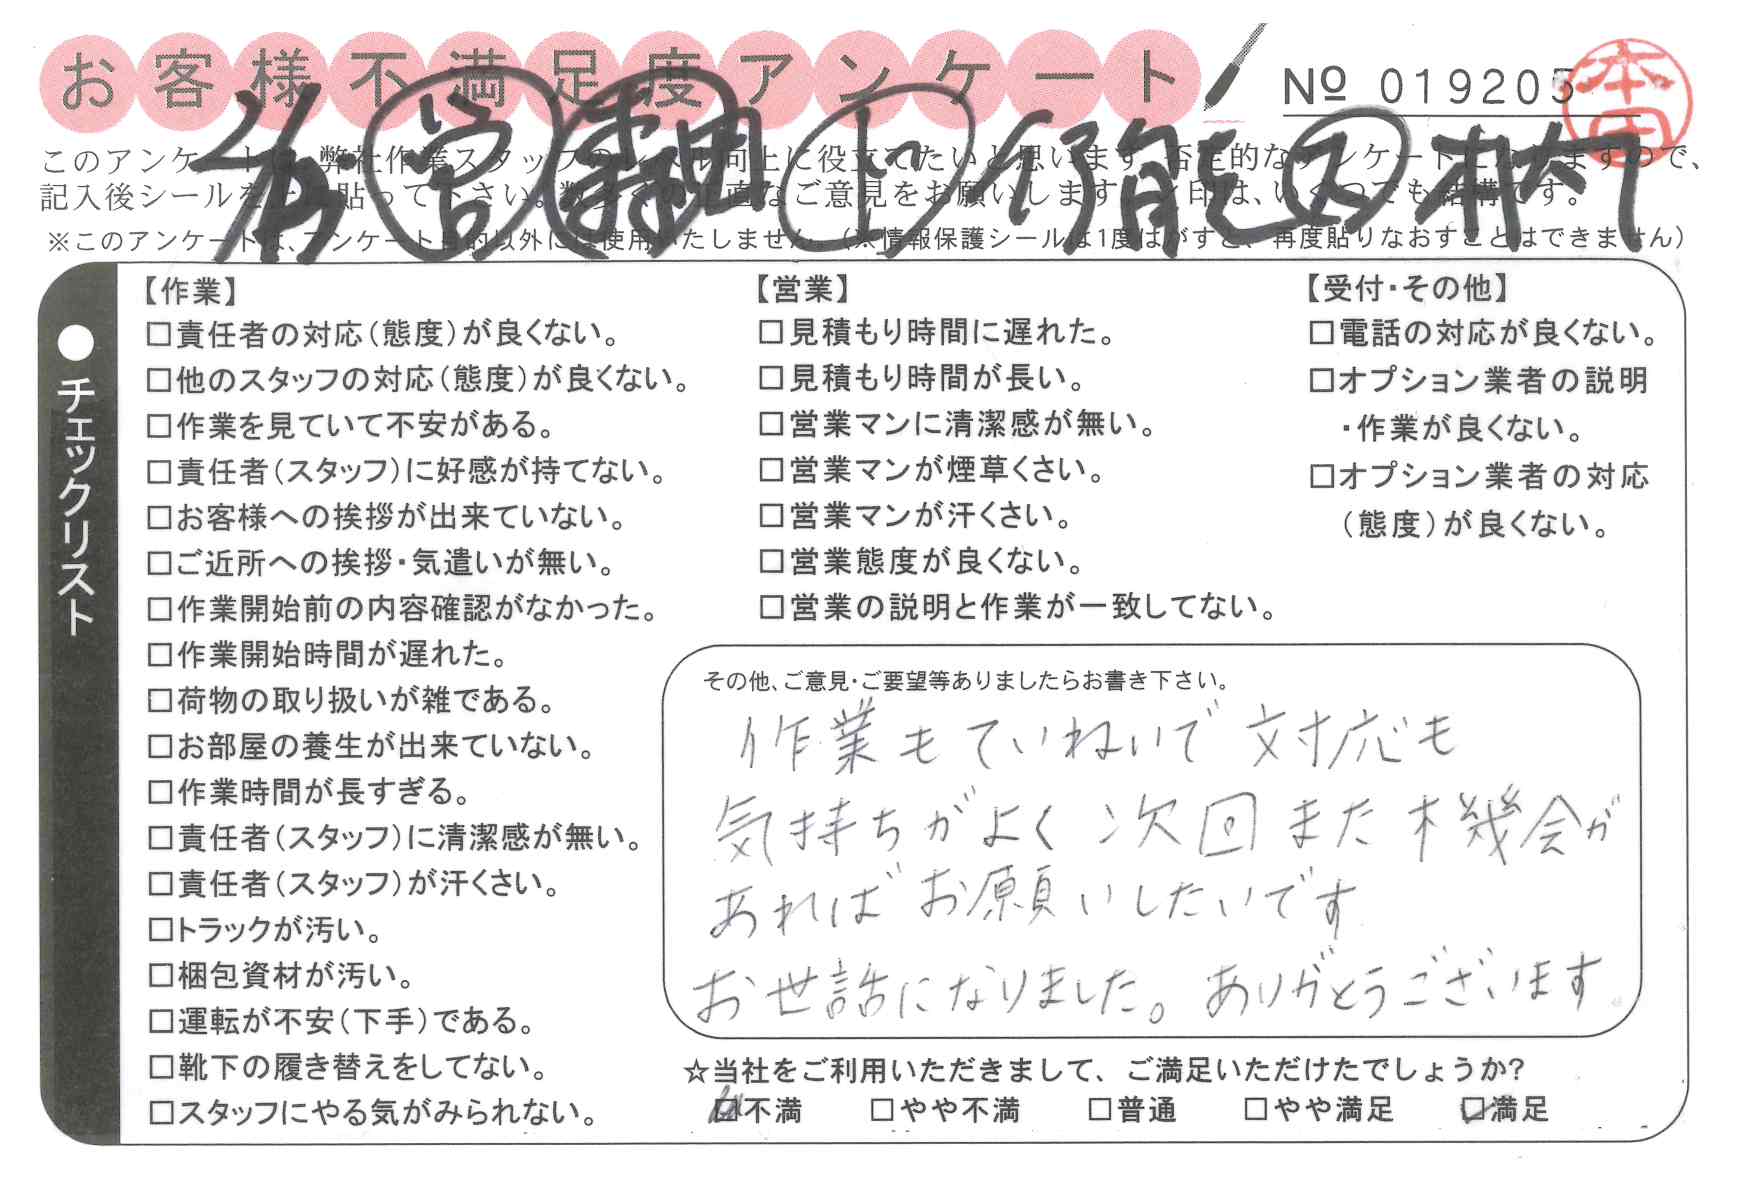 お客様不満足度アンケート
№ 019205
本田
このアンケートは、弊社作業スタッフのレベル向上に役立てたいと思います。否定的なアンケートになりますので、
記入後シールを上に貼って下さい。数多くの正直なご意見をお願いします。レ印は、いくつでも結構です。
※このアンケートは、アンケート目的以外には使用いたしません。(※情報保護シールは1度はがすと、再度貼りなおすことはできません)
●チェックリスト
【作業】
□責任者の対応(態度)が良くない。
□他のスタッフの対応(態度)が良くない。
□作業を見ていて不安がある。
□責任者(スタッフ)に好感が持てない。
□お客様への挨拶が出来ていない。
□ご近所への挨拶・気遣いが無い。
□作業開始前の内容確認がなかった。
□作業開始時間が遅れた。
□荷物の取り扱いが雑である。
□お部屋の養生が出来ていない。
□作業時間が長すぎる。
□責任者(スタッフ)に清潔感が無い。
□責任者(スタッフ)が汗くさい。
□トラックが汚い。
□梱包資材が汚い。
□運転が不安(下手)である。
□靴下の履き替えをしてない。
□スタッフにやる気がみられない。
【営業】
□見積もり時間に遅れた。
□見積もり時間が長い。
□営業マンに清潔感が無い。
□営業マンが煙草くさい。
□営業マンが汗くさい。
□営業態度が良くない。
□営業の説明と作業が一致してない。
【受付・その他】
□電話の対応が良くない。
□オプション業者の説明
・作業が良くない。
□オプション業者の対応
(態度)が良くない。
その他、ご意見・ご要望等ありましたらお書き下さい。
作業もていねいで 対応も
気持ちがよく 次回また機会が
あればお願いしたいです
お世話になりました。ありがとうございます
☆当社をご利用いただきまして、ご満足いただけたでしょうか?
□不満 □やや不満 □普通 □やや満足 ☑満足